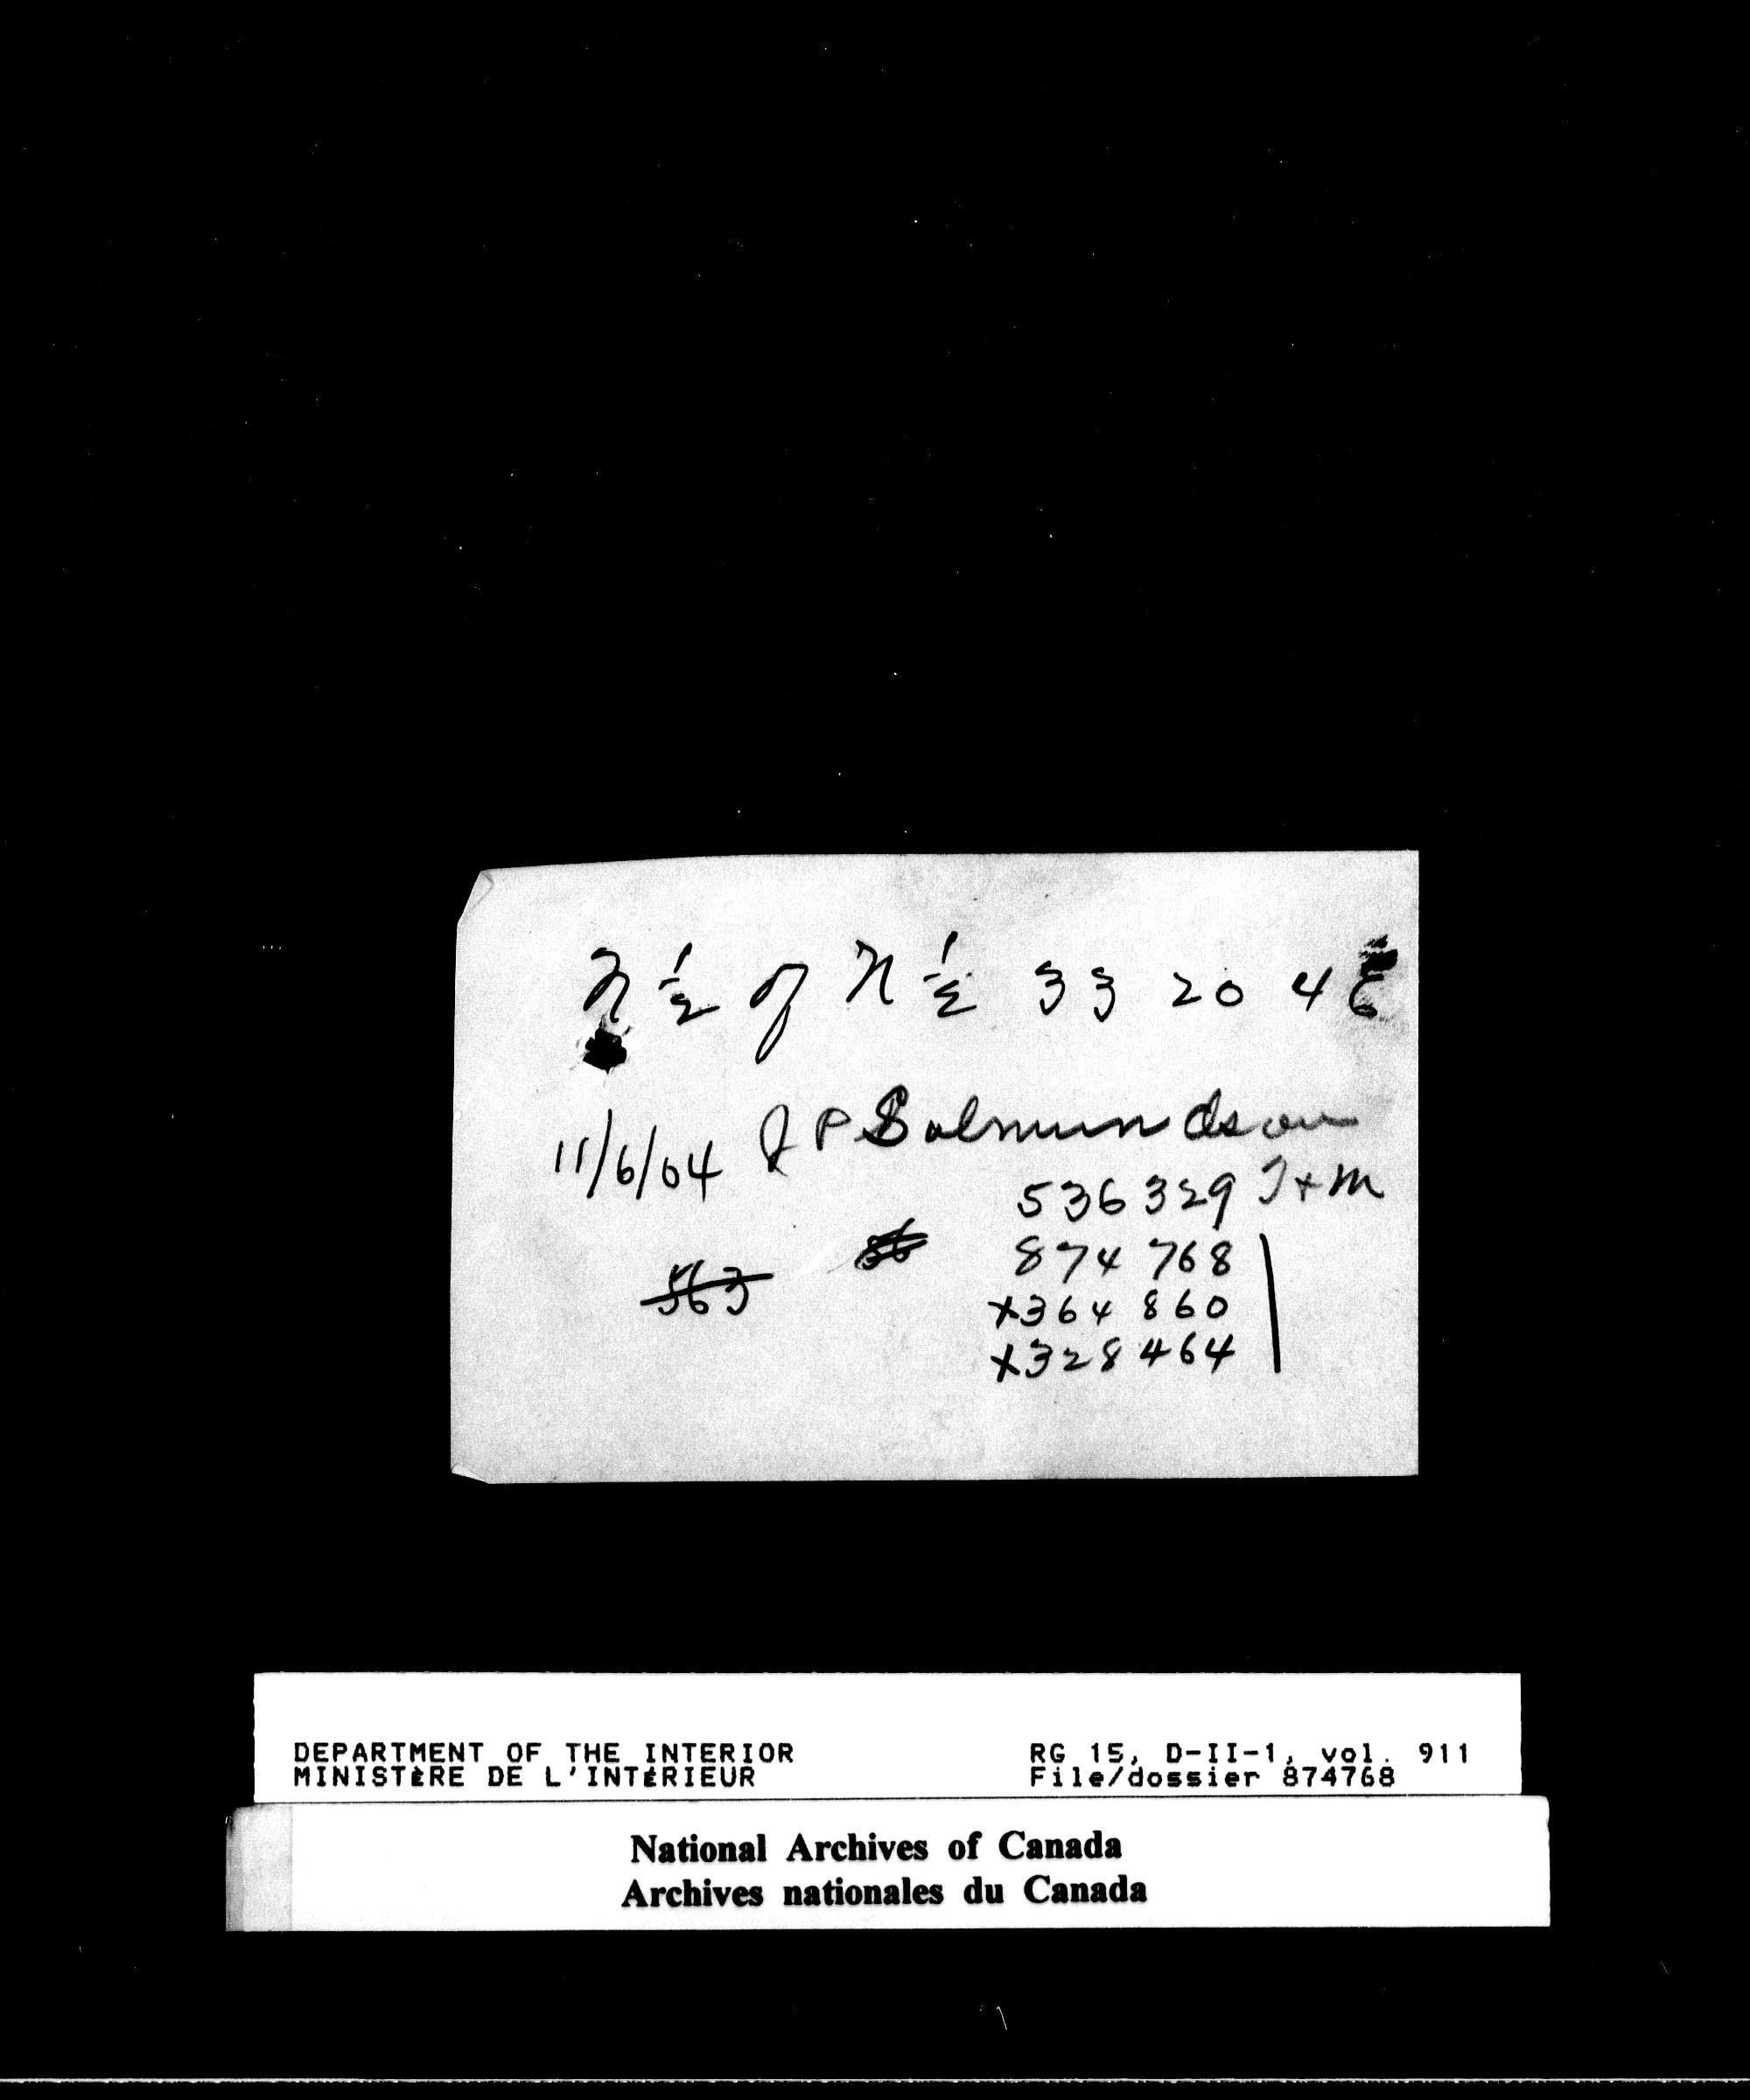 N ½ of N ½ 33 20 4 E
11/6/04 J P Solmundson
536 329 T + M
874 768
563
x364 860
x328 464
DEPARTMENT OF THE INTERIOR RG 15, D-II-1, vol. 911
MINISTÈRE DE L'INTÉRIEUR File/dossier 874768
National Archives of Canada
Archives nationales du Canada